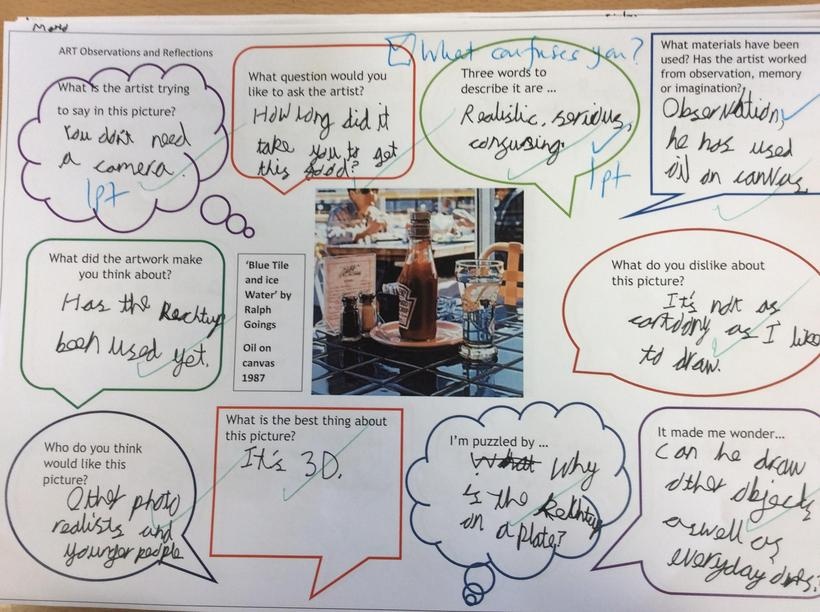 ART Observations and Reflections
What is the artist trying
to say in this picture?
You don't need
a camera.
1pt
What question would you
like to ask the artist?
How long did it
take you to get
this good?
What confuses you?
Three words to
describe it are ...
Realistic, serious,
1pt
What materials have been
used? Has the artist worked
from observation, memory
or imagination?
Observation,
he has used
oil on canvas.
What did the artwork make
you think about?
Has the
been used yet.
'Blue Tile
and ice
Water' by
Ralph
Goings
Oil on
canvas
1987
What do you dislike about
this picture?
It's not as
cartoony as I like
to draw.
Who do you think
would like this
picture?
Other photo
realists and
younger people
What is the best thing about
this picture?
It's 3D.
I'm puzzled by ...
What Why
is the
on a plate?
It made me wonder...
Can he draw
other objects
aswell as
everyday